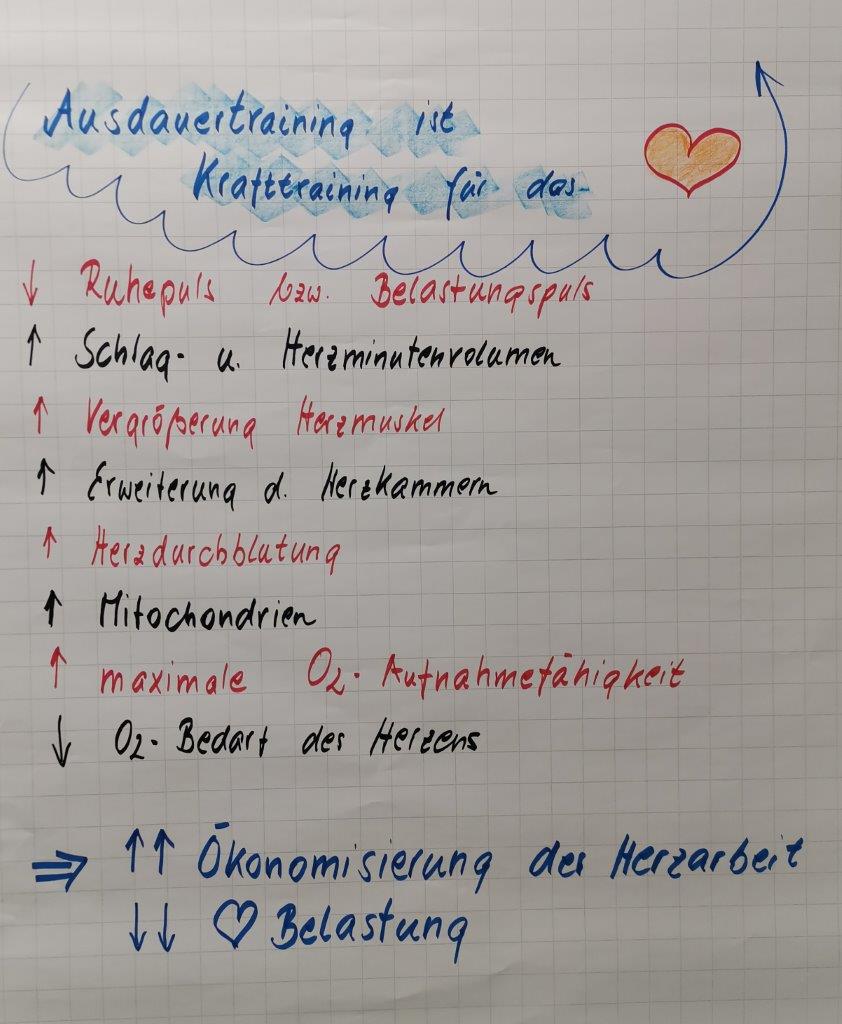 Ausdauertraining ist
Krafttraining für das
↓ Ruhepuls bzw. Belastungspuls
↑ Schlag- u. Herzminutenvolumen
↑ Vergrößerung Herzmuskel
↑ Erweiterung d. Herzkammern
↑ Herzdurchblutung
↑ Mitochondrien
↑ maximale O2-Aufnahmefähigkeit
↓ O2-Bedarf des Herzens
⇒ ↑↑ Ökonomisierung der Herzarbeit
↓↓ ♡ Belastung